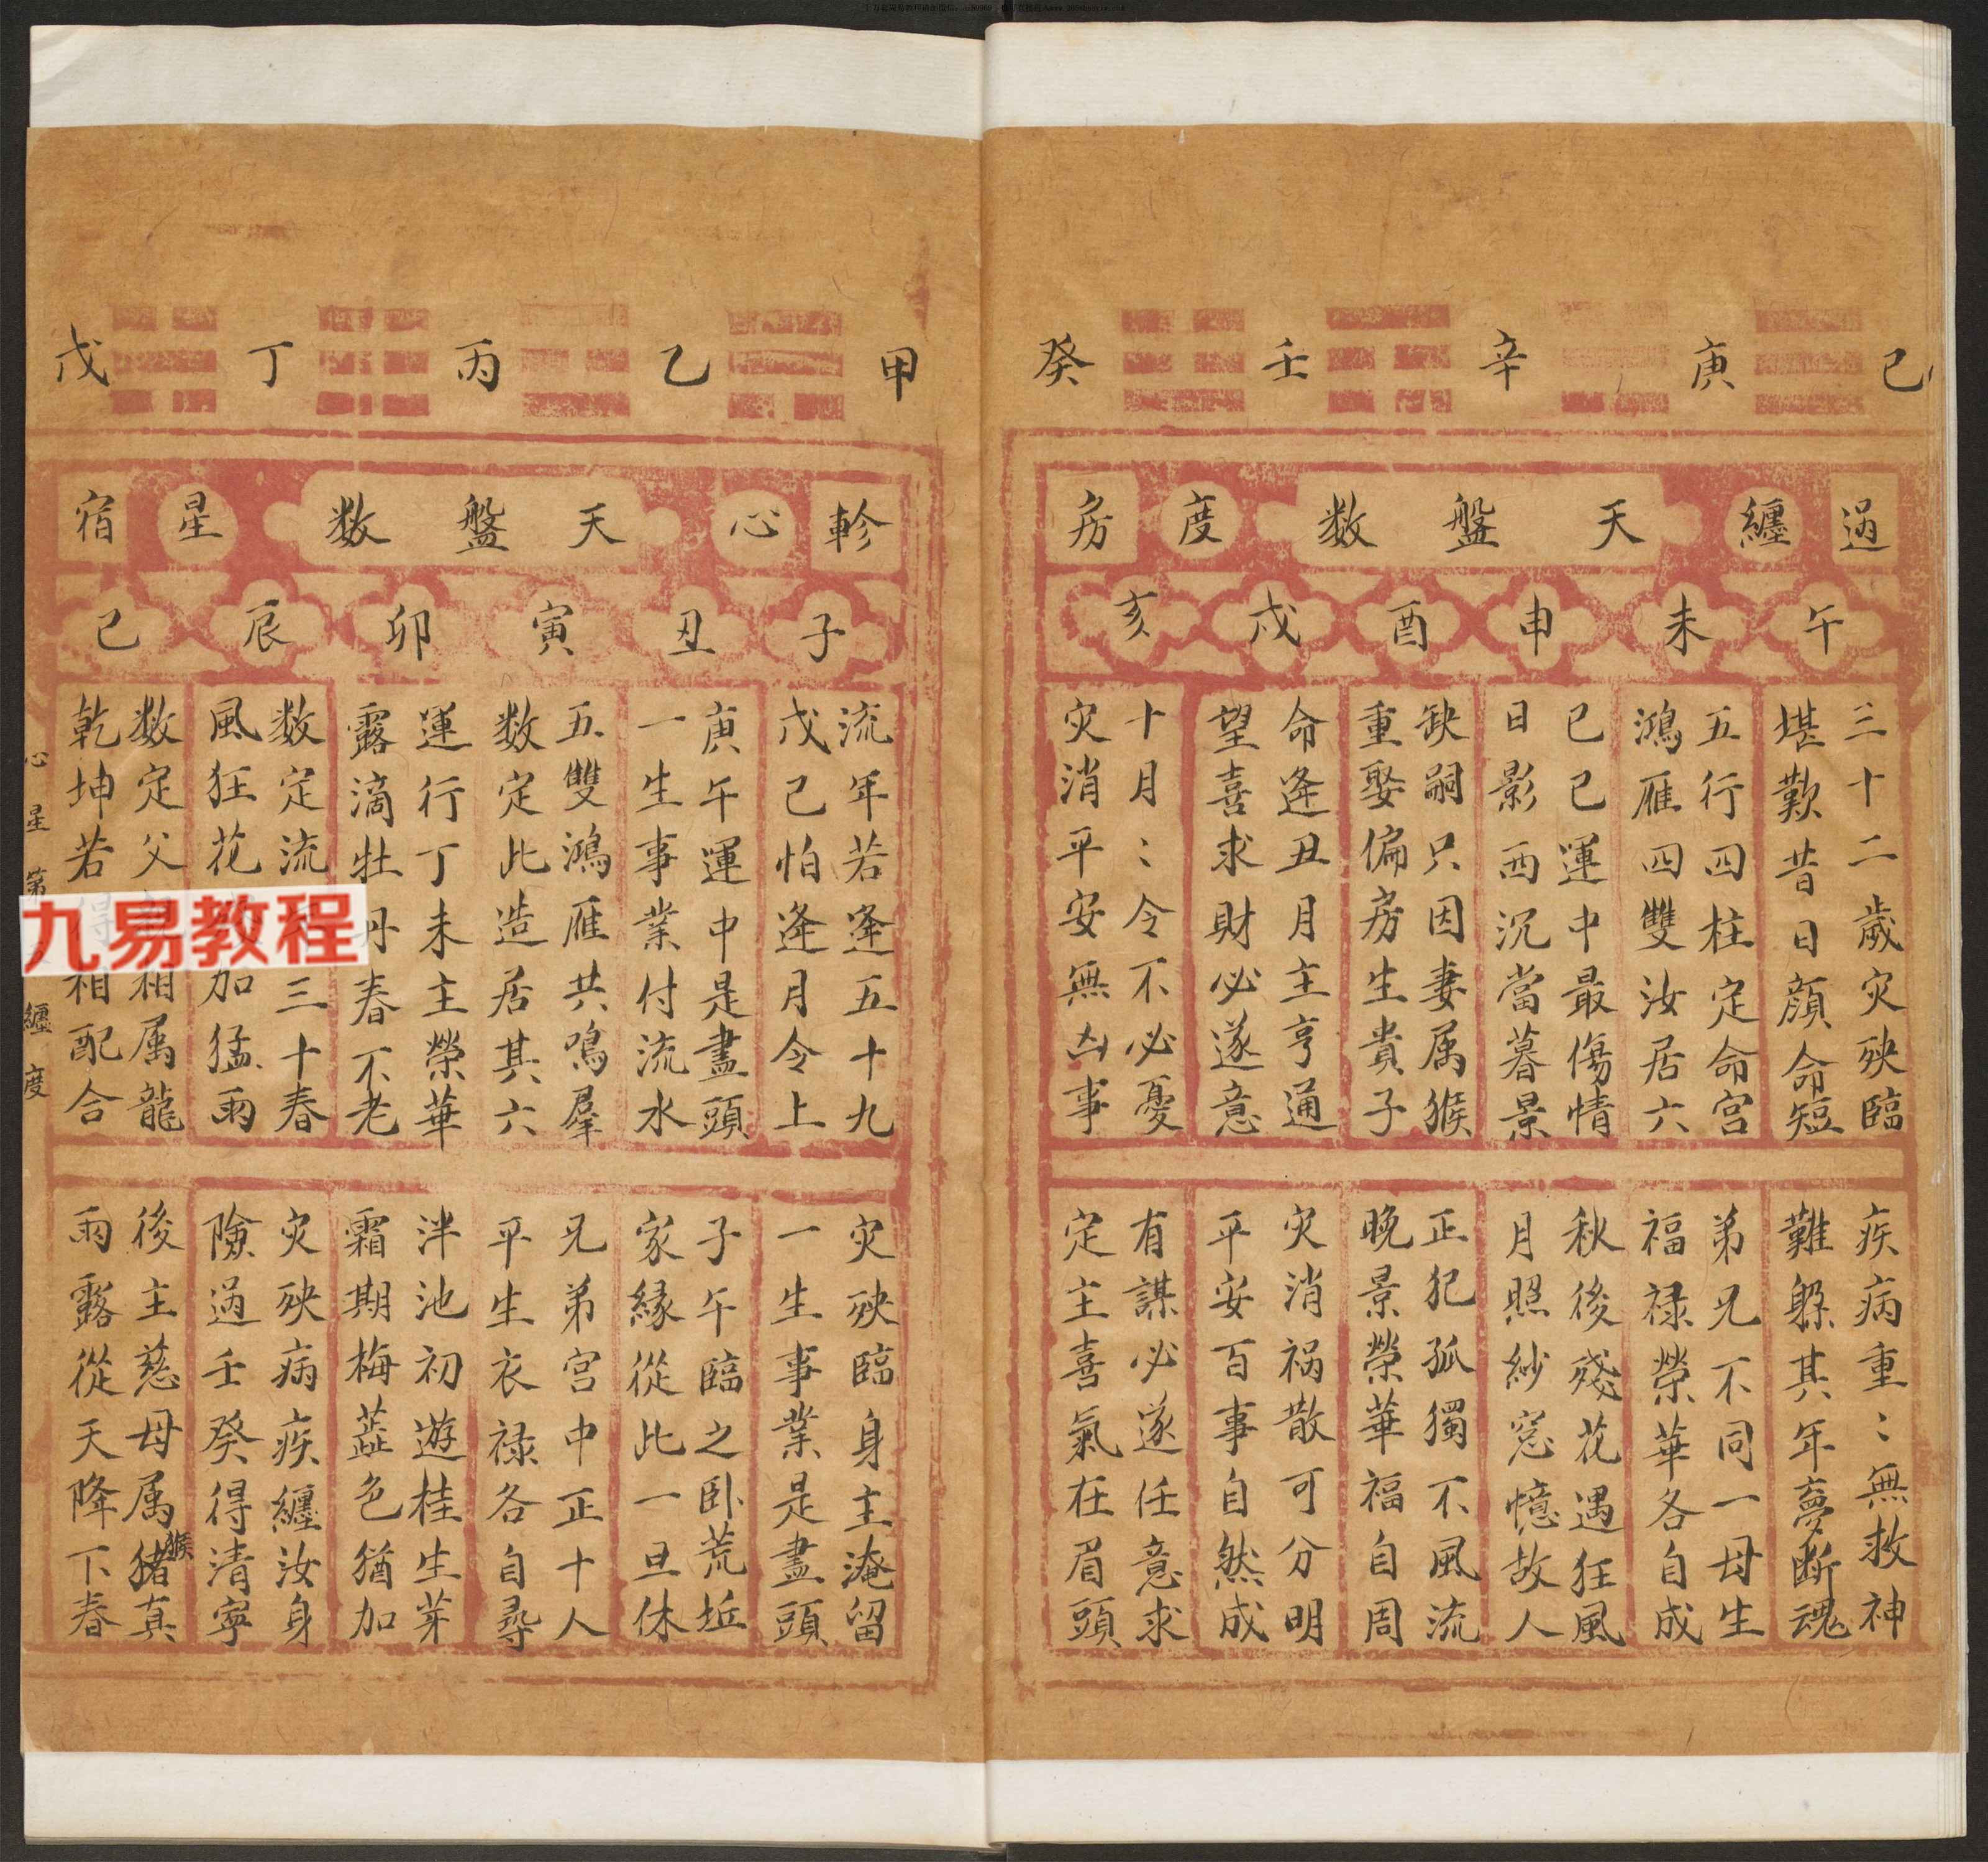 己 庚 辛 壬 癸
過 纏 天盤数 度 房
午 未 申 酉 戌 亥
三十二歲灾殃臨
堪歎昔日顔命短
五行四柱定命宫
鴻雁四雙汝居六
己巳運中最傷情
日影西沉當暮景
缺嗣只因妻属猴
重娶偏房生貴子
命逢丑月主亨通
望喜求財必遂意
十月〻令不必憂
灾消平安無凶事
疾病重〻無救神
難躲其年夢断魂
弟兄不同一母生
福禄榮華各自成
秋後殘花遇狂風
月照紗窓憶故人
正犯孤獨不風流
晚景榮華福自周
灾消祸散可分明
平安百事自然成
有謀必遂任意求
定主喜氣在眉頭
甲 乙 丙 丁 戊
軫 心 天盤数 星 宿
子 丑 寅 卯 辰 巳
流年若逢五十九
戊己怕逢月令上
庚午運中是盡頭
一生事業付流水
五雙鴻雁共鳴羣
数定此造居其六
運行丁未主榮華
露滴牡丹春不老
数定流三十春
風狂花加猛雨
数定父相属龍
乾坤若得相配合
灾殃臨身主淹留
一生事業是盡頭
子午臨之卧荒坵
家緣從此一旦休
兄弟宫中正十人
平生衣禄各自尋
泮池初遊桂生芽
霜期梅蕋色猶加
灾殃病疾纏汝身
險過壬癸得清寧
後主慈母属猪真
猴
雨露從天降下春
心星第纏度
九易教程